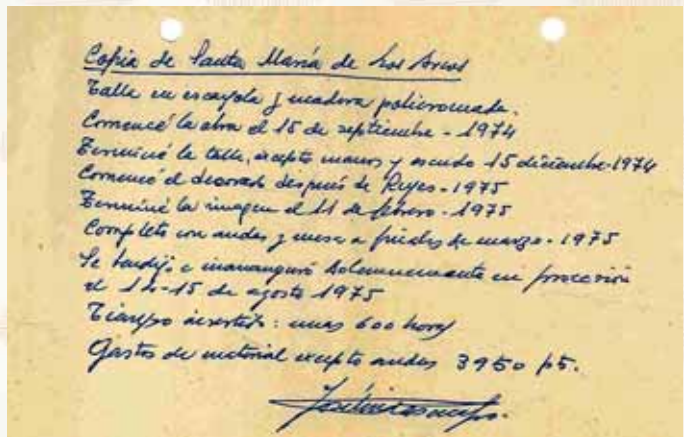 Copia de Santa María de Los Arcos
Talla en escayola y madera policromada.
Comencé la obra el 15 de septiembre - 1974
Terminé la talla, excepto manos y escudo 15 diciembre - 1974
Comencé el decorado después de Reyes - 1975
Terminé la imagen el 11 de febrero - 1975
Completa con andas y mesa a finales de marzo - 1975
Se bendijo e inauguró solemnemente en procesión
el 14-15 de agosto 1975
Tiempo invertido: unas 600 horas
Gastos de material excepto andas 3950 pts.